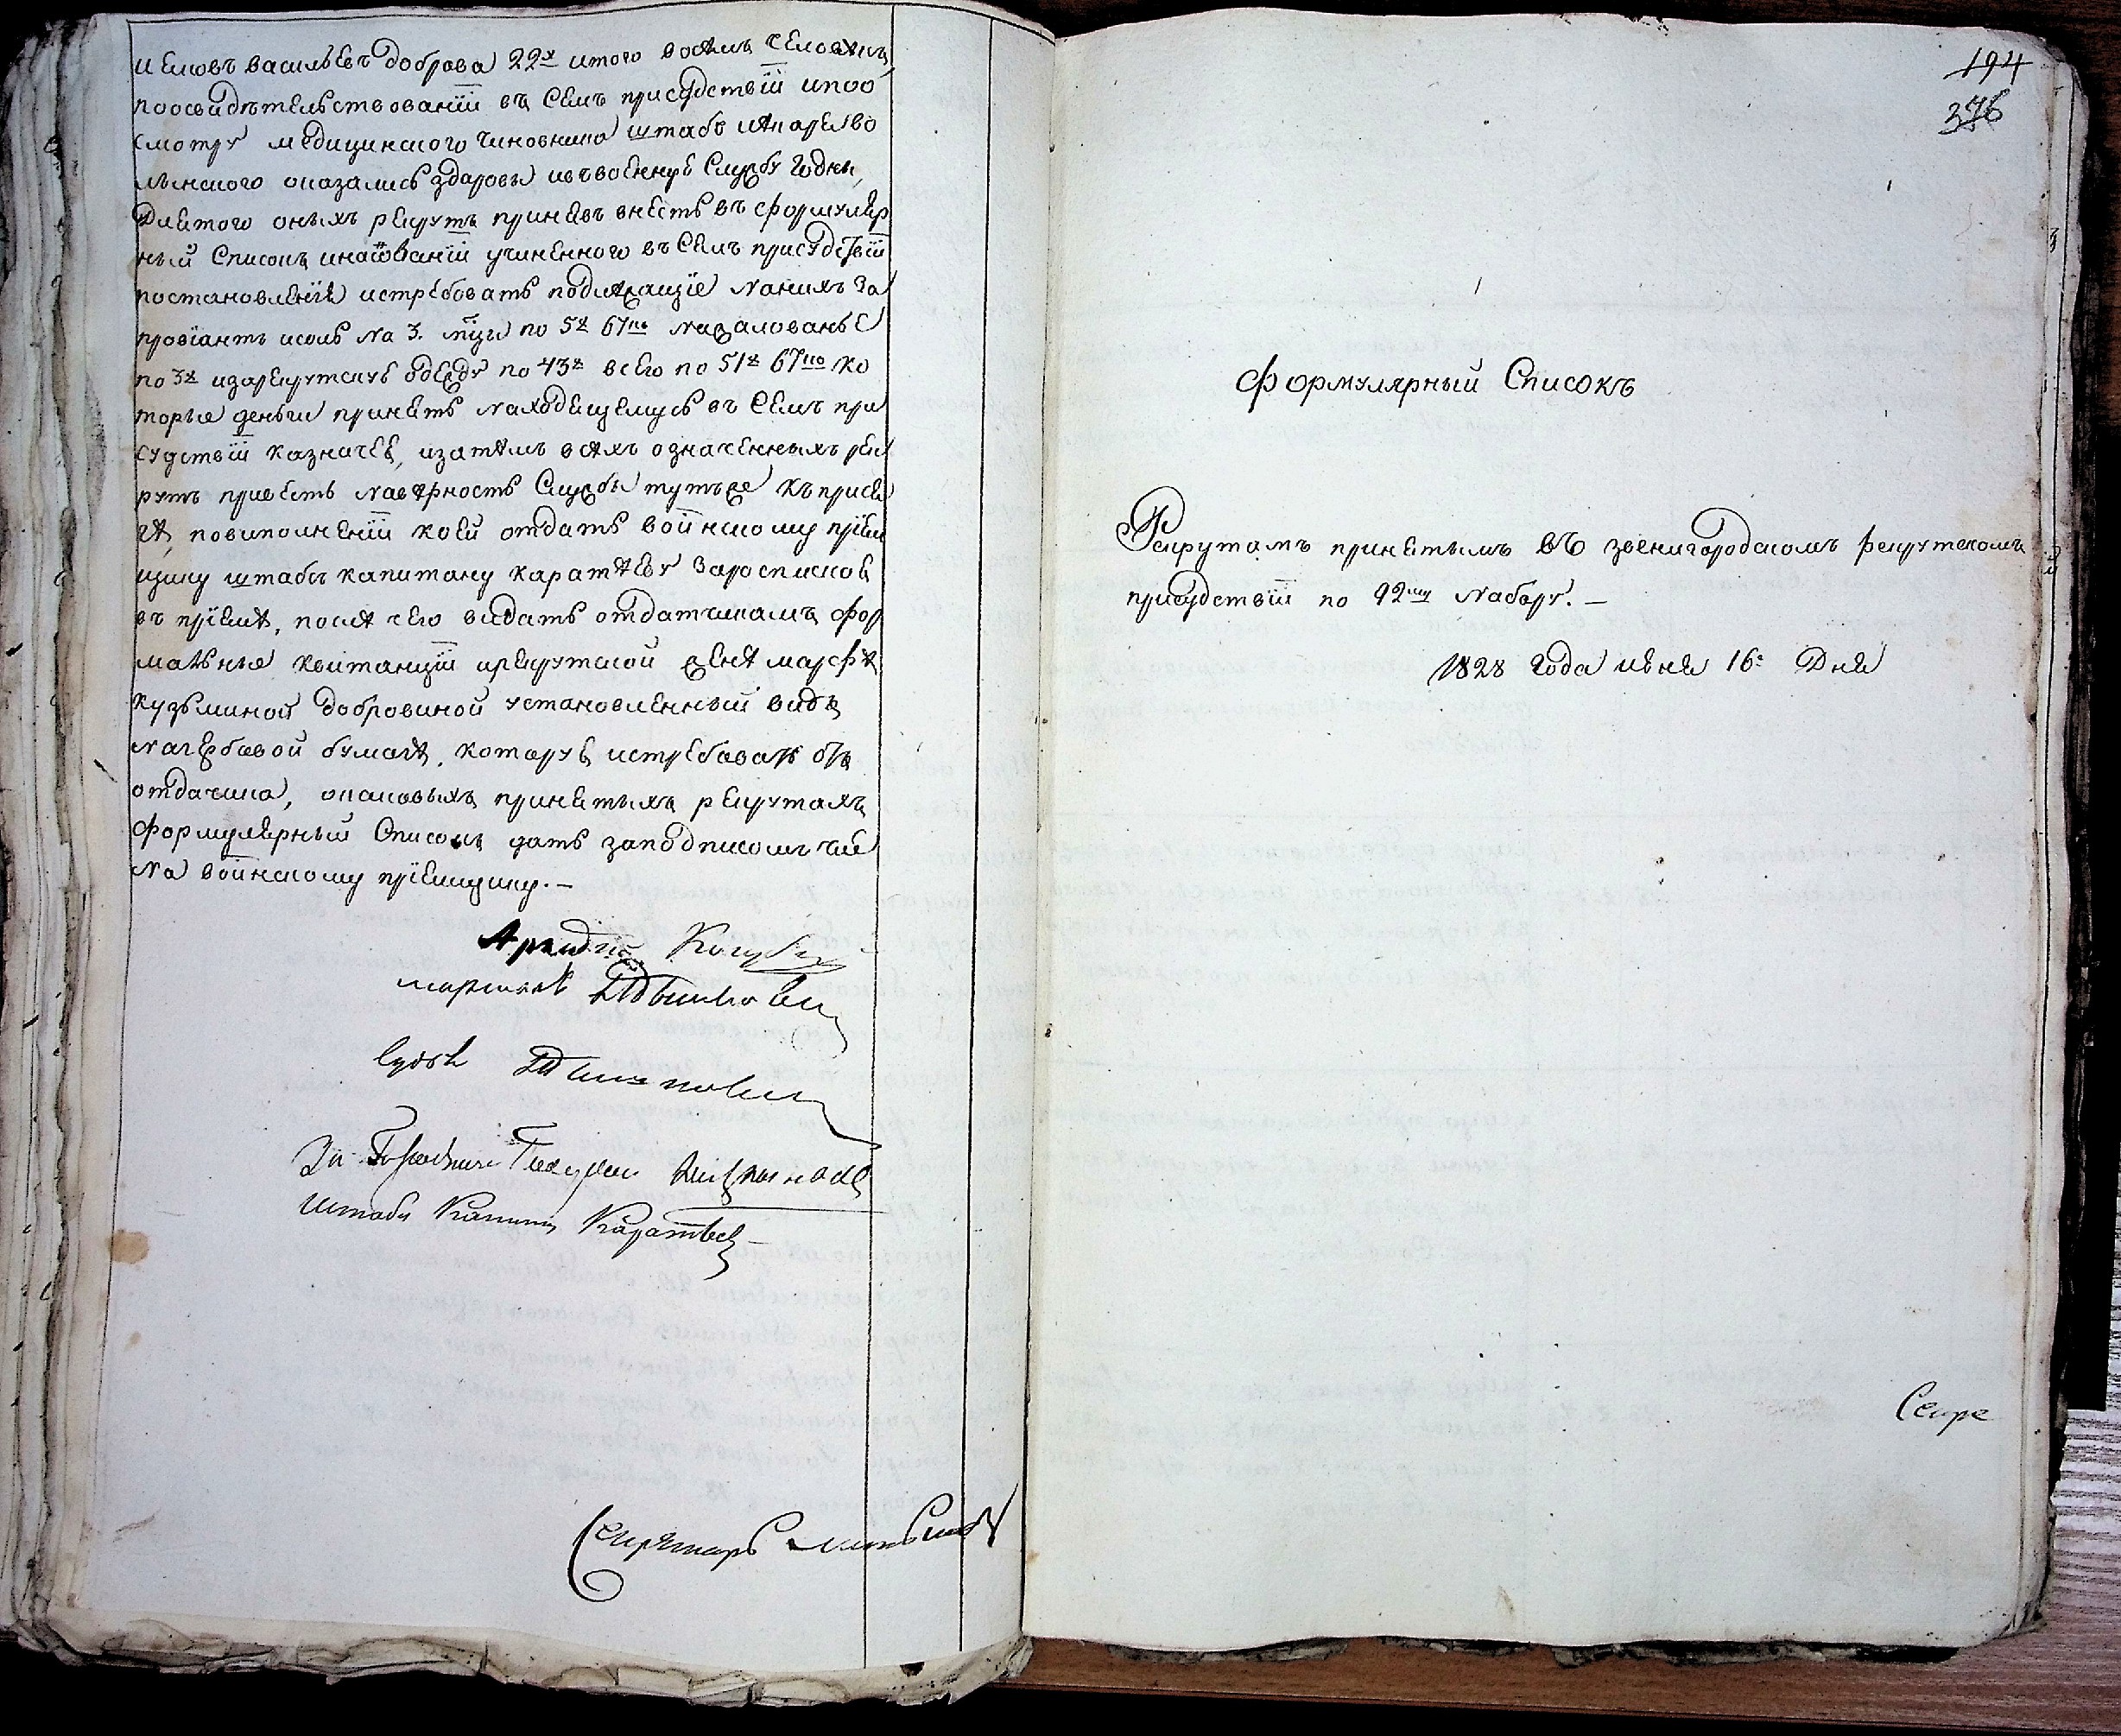 и Еливъ васильевъ доброва 22х итого восемь человѣкъ,
поосвидѣтельствованїи въ Семъ присудствїи ипоо
смотру медицинского чиновника штабъ лѣкаря Во
лынского оказались здаровы ивъ военную Службу годны,
Длятого оныхъ рекрутъ принявъ внесть въ формуляр
ный Списокъ инаоснованїи учиненного въ Семъ присудствїи
постановленїя истребовать подлежащїе наихъ за
провїантъ исоль на 3. мцы по 5х 67ко нажалованье
по 3х изарекрутскую одежду по 43х всего по 51х 67ко ко
торые деньги принять находящемусь въ Семъ при
судствїи казначею, изатѣмъ всѣхъ означенныхъ рек
рутъ привесть навѣрность Службы тутъже къприся
гѣ, повиполненїи коей отдать воинскому прїем
щику штабсъ капитану каратѣеву заросписков
въ прїемѣ, послѣ чего видать отдатчикамъ фор
мальные квитанцїи ирекрутской женѣ марфѣ
кузьминой добровиной установленный видъ
нагербовой бумагѣ, которую истребовать отъ
отдачика, окаковыхъ принятыхъ рекрутахъ
формулярный Списокъ дать заподписомъ чле
на воинскому прїемщику.—
маршалъ
Судья
За
Штабсъ Капитан Каратѣев
Секретарь
194
376
формулярный Списокъ
Рекрутамъ принятымъ въ звенигородскомъ рекрутскомъ
присудствїи по 92му набору.—
1828 года июня 16го Дня
Секре